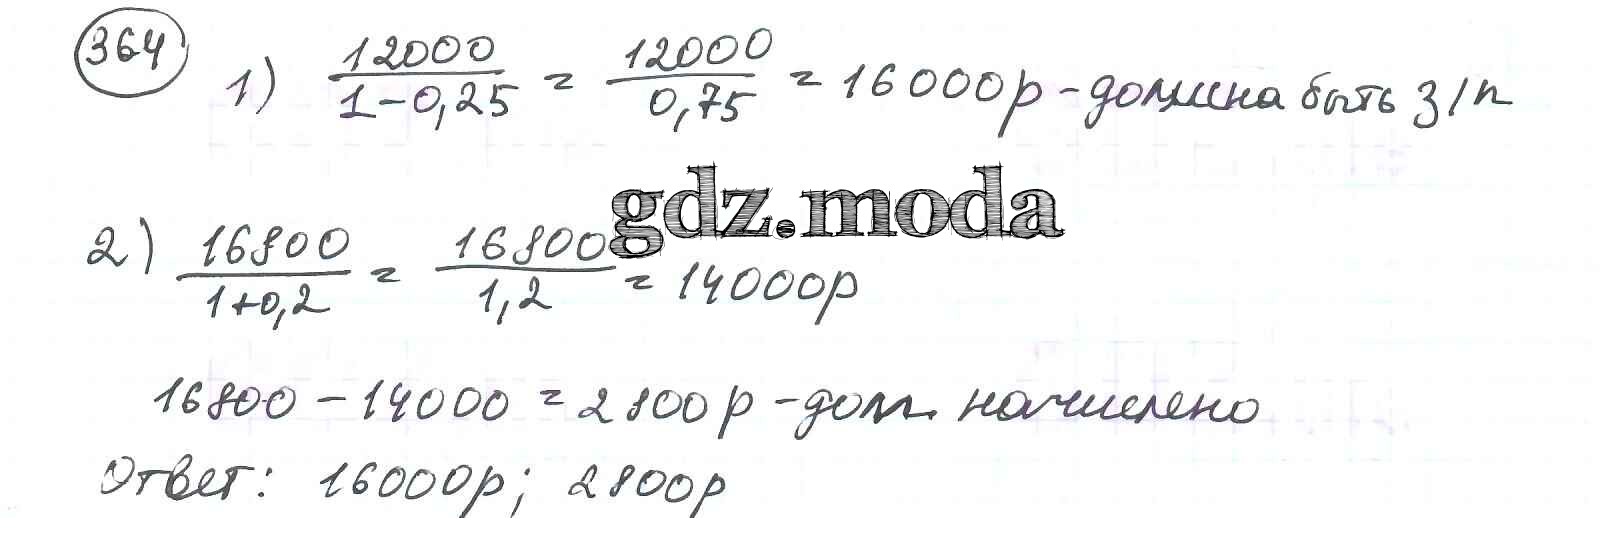 364
1) 12000/1-0,25 = 12000/0,75 = 16000р - должна быть з/п
gdz.moda
2) 16800/1+0,2 = 16800/1,2 = 14000р
16800 - 14000 = 2800р - долж. начислено
Ответ: 16000р; 2800р